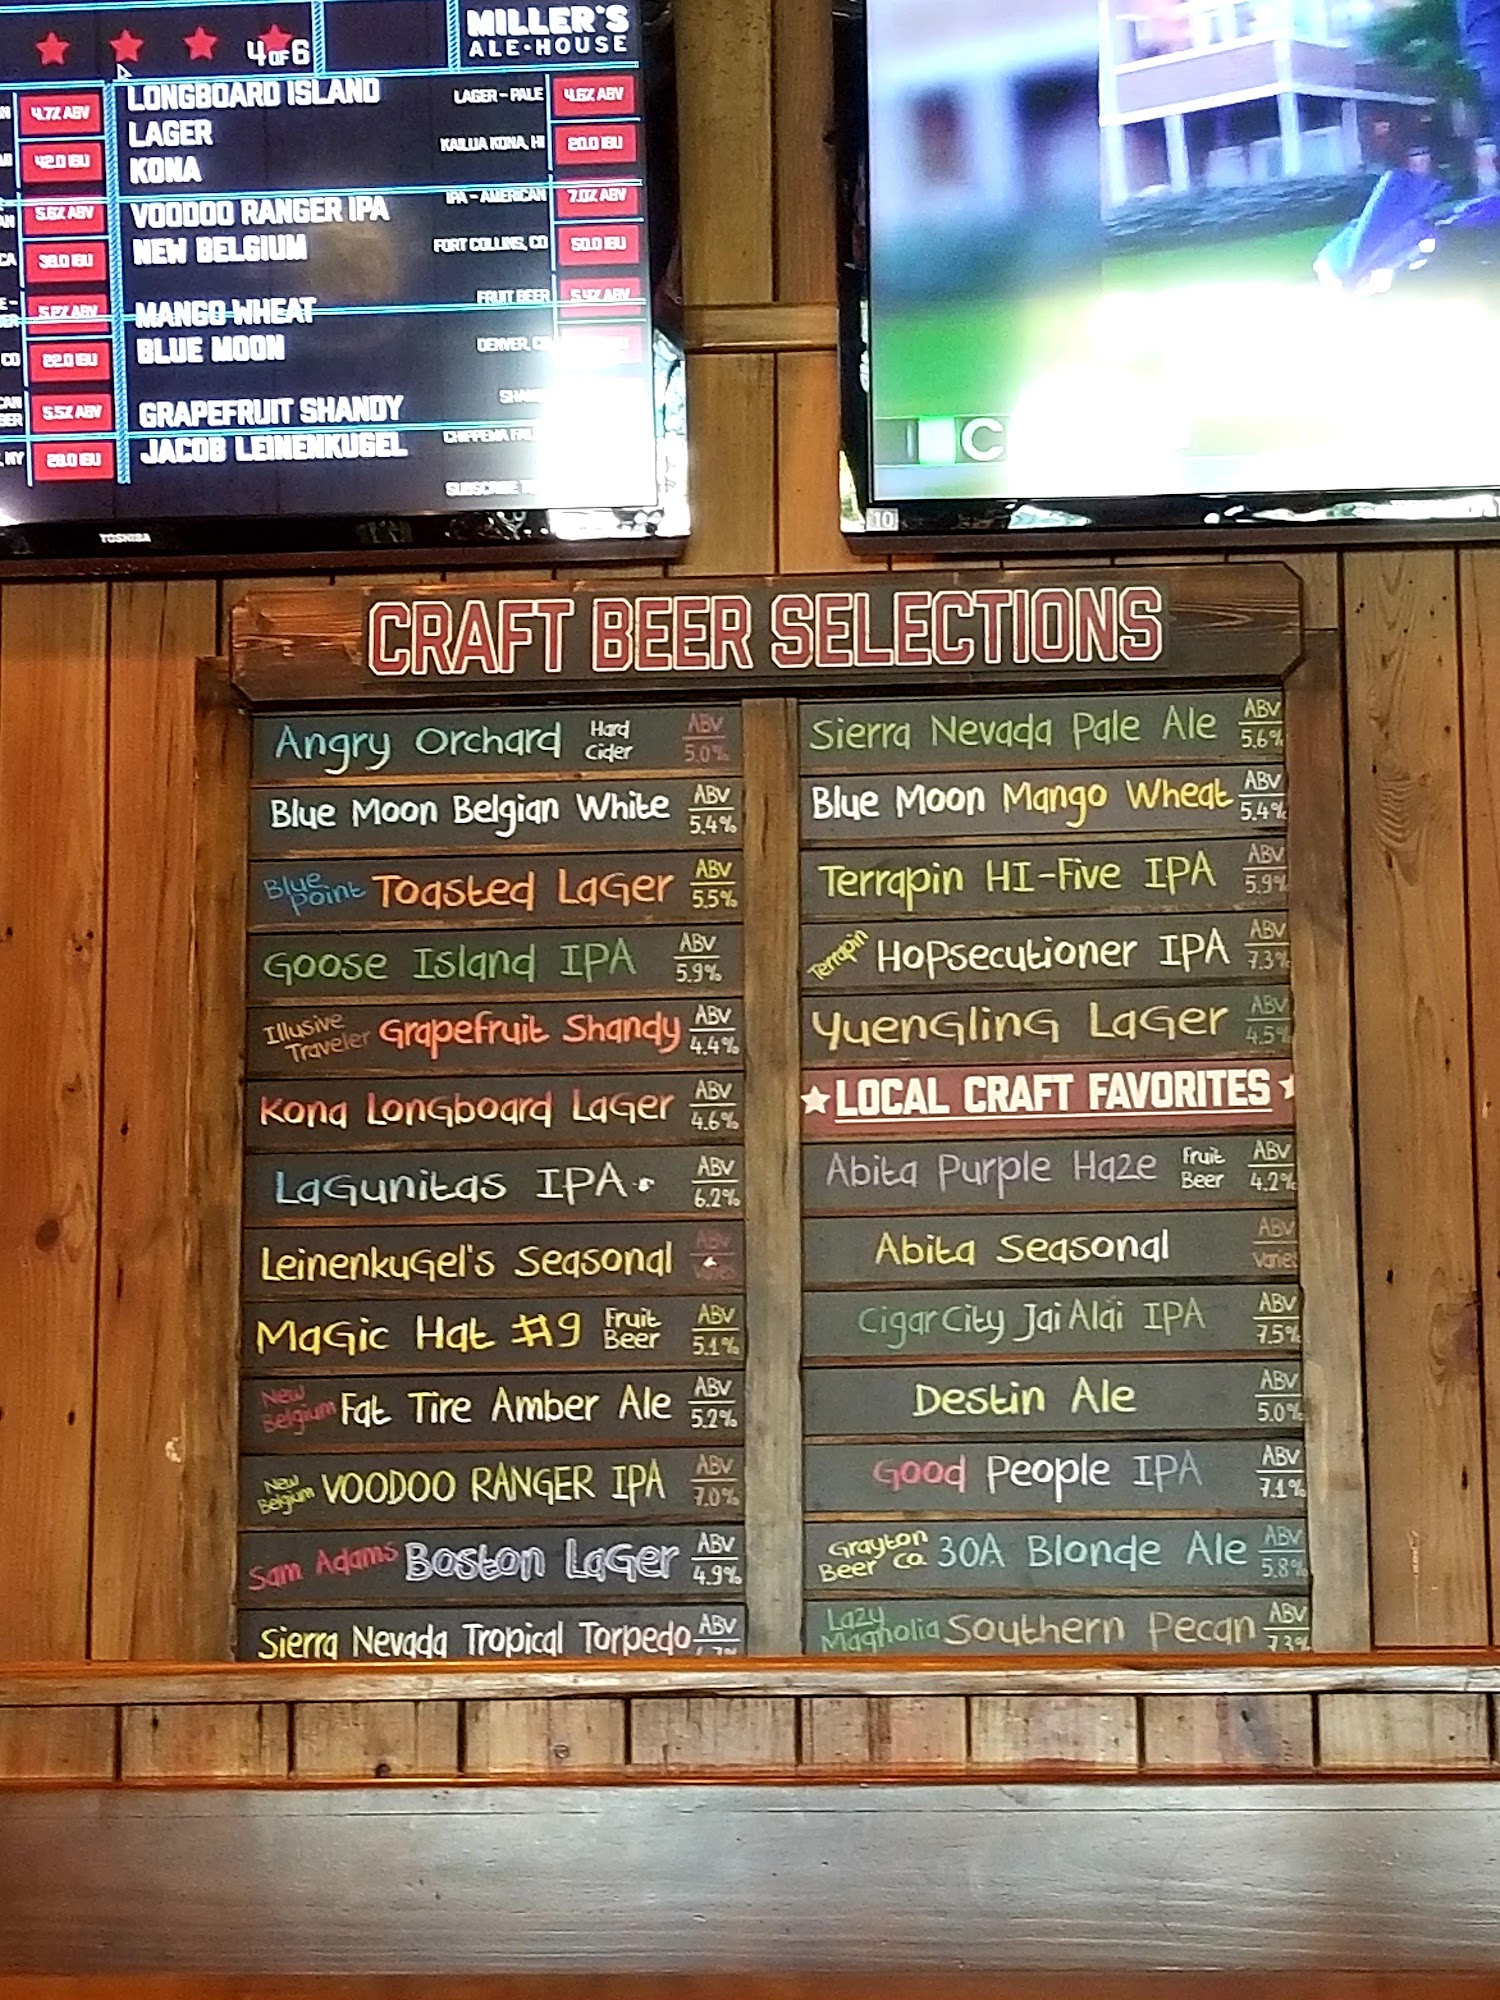 4 OF 6
MILLER'S
ALE·HOUSE
4.7% ABV
42.0 IBU
5.6% ABV
CA 38.0 IBU
5.2% ABV
CO 22.0 IBU
5.5% ABV
, NY 28.0 IBU
LONGBOARD ISLAND LAGER - PALE 4.6% ABV
LAGER KAILUA KONA, HI 20.0 IBU
KONA
VOODOO RANGER IPA IPA - AMERICAN 7.0% ABV
NEW BELGIUM FORT COLLINS, CO 50.0 IBU
MANGO WHEAT FRUIT BEER 5.4% ABV
BLUE MOON DENVER,
GRAPEFRUIT SHANDY
JACOB LEINENKUGEL CHIPPEWA
SUBSCRIBE
TOSHIBA
C
10
CRAFT BEER SELECTIONS
Angry Orchard Hard Cider ABV 5.0%
Blue Moon Belgian White ABV 5.4%
Blue Point Toasted Lager ABV 5.5%
Goose Island IPA ABV 5.9%
Illusive Traveler Grapefruit Shandy ABV 4.4%
Kona Longboard Lager ABV 4.6%
Lagunitas IPA ABV 6.2%
Leinenkugel's Seasonal ABV Varies
Magic Hat #9 Fruit Beer ABV 5.1%
New Belgium Fat Tire Amber Ale ABV 5.2%
New Belgium VOODOO RANGER IPA ABV 7.0%
Sam Adams Boston Lager ABV 4.9%
Sierra Nevada Tropical Torpedo ABV
Sierra Nevada Pale Ale ABV 5.6%
Blue Moon Mango Wheat ABV 5.4%
Terrapin HI-Five IPA ABV 5.9%
Terrapin Hopsecutioner IPA ABV 7.3%
Yuengling Lager ABV 4.5%
LOCAL CRAFT FAVORITES
Abita Purple Haze Fruit Beer ABV 4.2%
Abita Seasonal ABV Varies
Cigar City Jai Alai IPA ABV 7.5%
Destin Ale ABV 5.0%
Good People IPA ABV 7.1%
Grayton Beer Co. 30A Blonde Ale ABV 5.8%
Lazy Magnolia Southern Pecan ABV